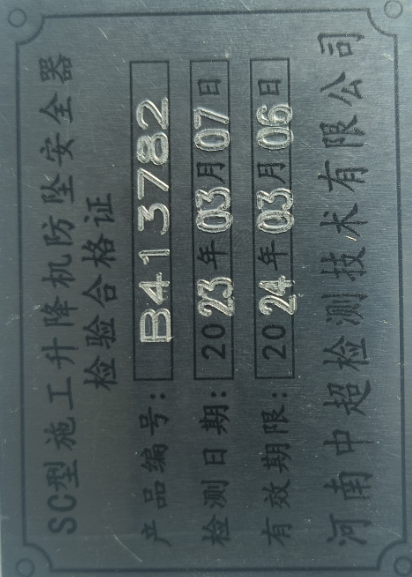 SC型施工升降机防坠安全器
检验合格证
产品编号: B413782
检测日期: 2023年03月07日
有效期限: 2024年03月06日
河南中超检测技术有限公司